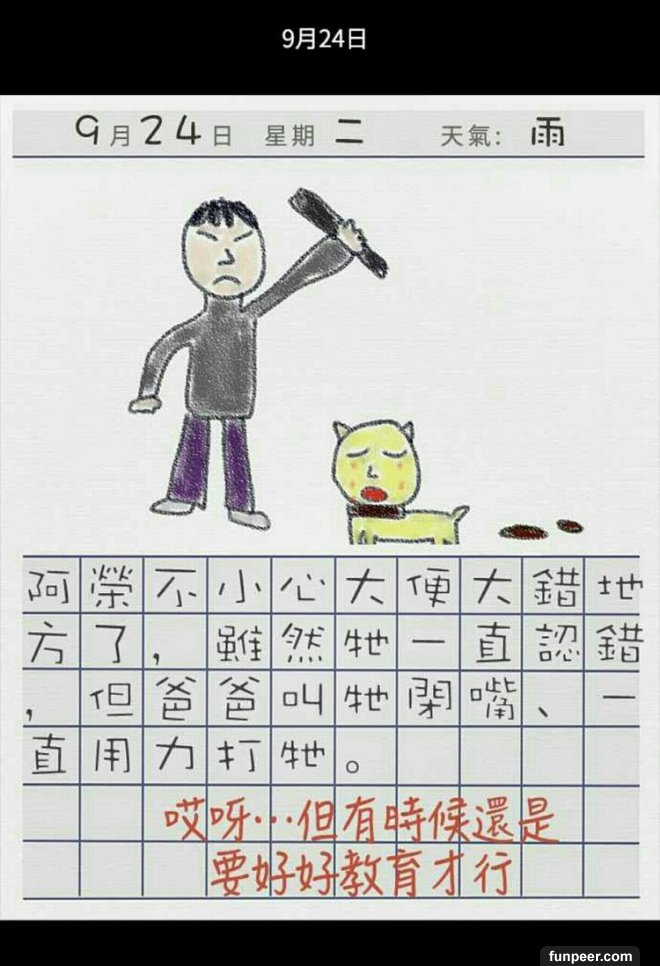 9月24日
9月24日 星期 二 天氣: 雨
阿榮不小心大便大錯地
方了,雖然牠一直認錯
,但爸爸叫牠閉嘴、一
直用力打牠。
哎呀…但有時候還是
要好好教育才行
funpeer.com